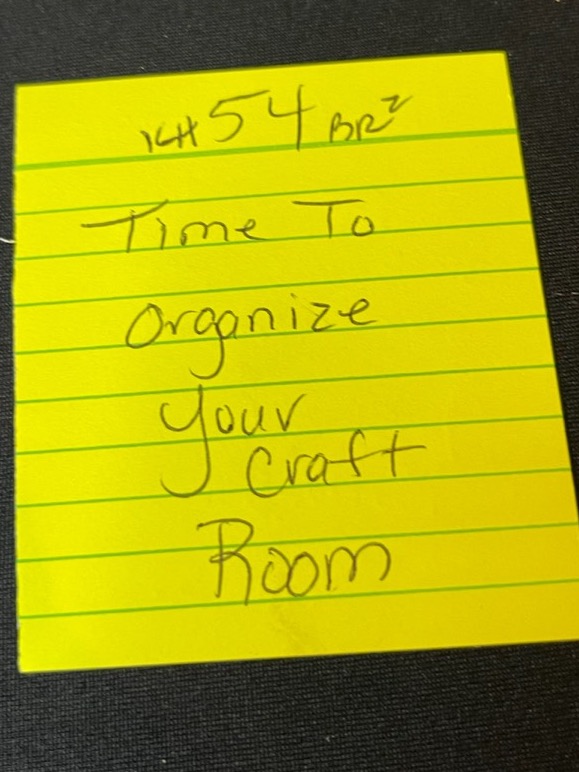 KH 54 BR²
Time To
Organize
Your
Craft
Room